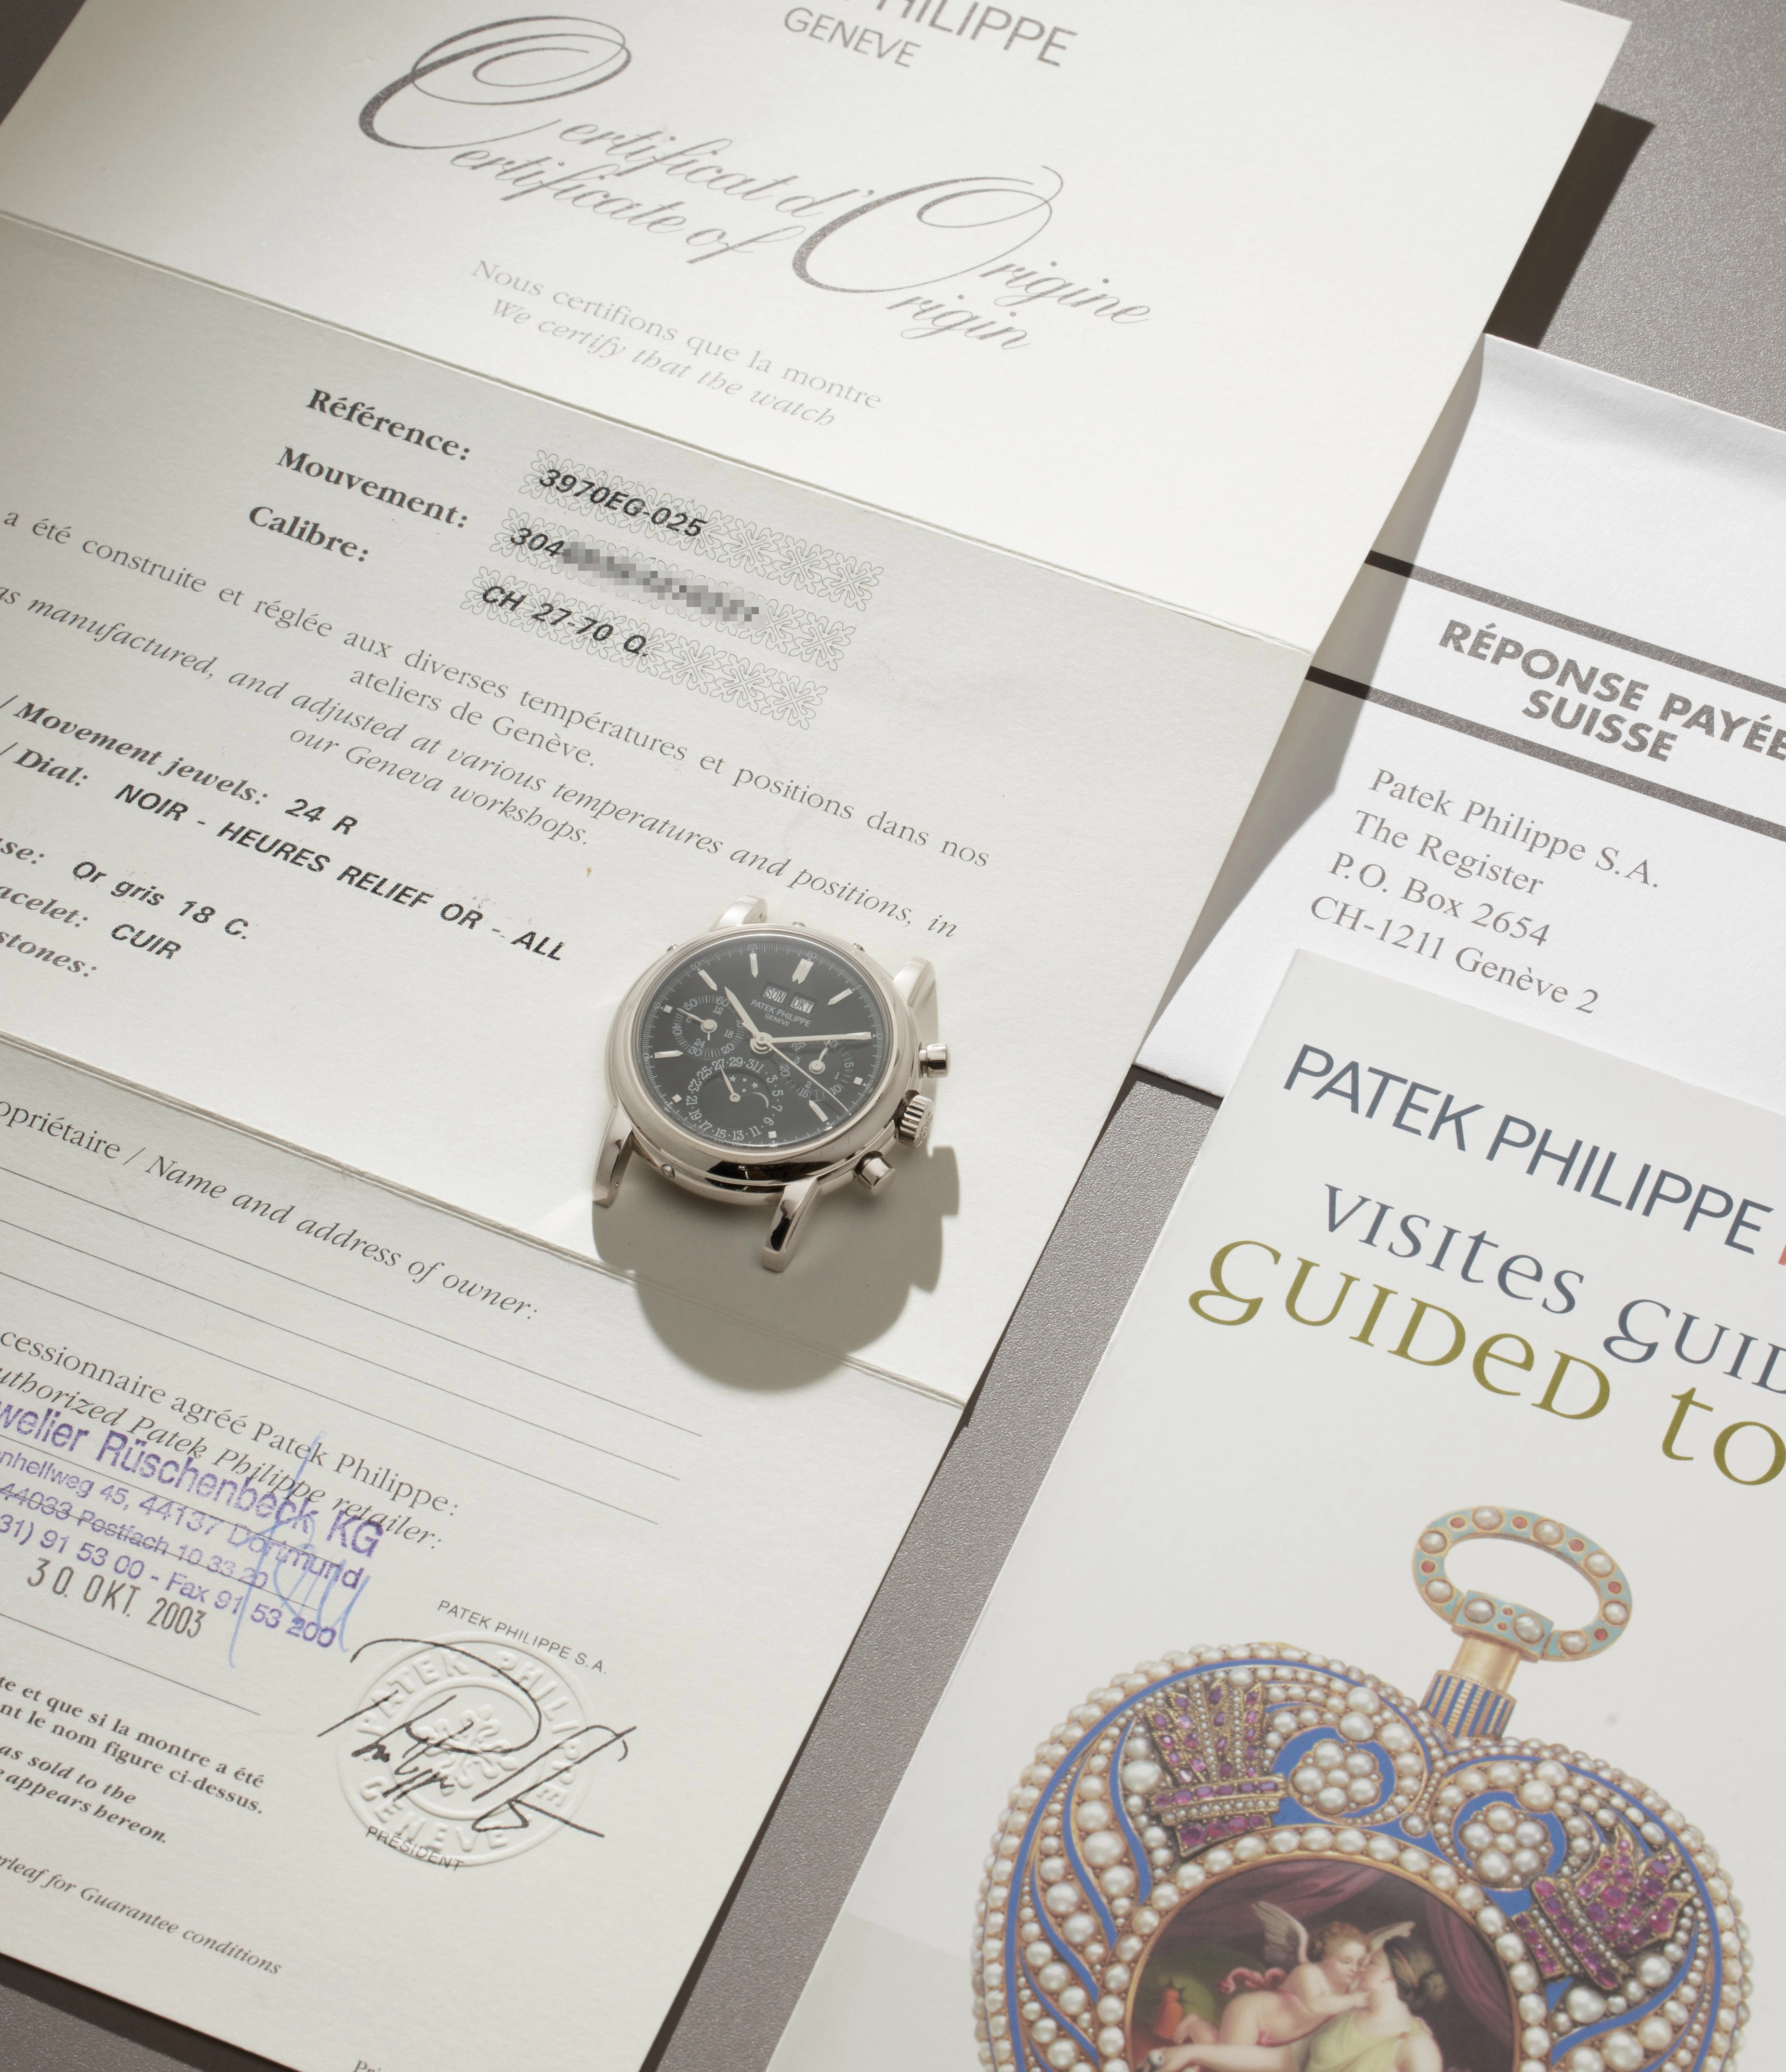 PHILIPPE
GENEVE
Certificat d'Origine
Certificate of Origin
Nous certifions que la montre
We certify that the watch
Référence: 3970EG-025
Mouvement: 304
Calibre: CH 27-70 Q.
a été construite et réglée aux diverses températures et positions dans nos
ateliers de Genève.
as manufactured, and adjusted at various temperatures and positions, in
our Geneva workshops.
/ Movement jewels: 24 R
/ Dial: NOIR - HEURES RELIEF OR - ALL
se: Or gris 18 C.
acelet: CUIR
stones:
opriétaire / Name and address of owner:
cessionnaire agréé Patek Philippe:
uthorized Patek Philippe retailer:
welier Rüschenbeck KG
nhellweg 45, 44137 Dortmund
44033 Postfach 10 33 20
31) 91 53 00 - Fax 91 53 200
30. OKT. 2003
te et que si la montre a été
nt le nom figure ci-dessus.
as sold to the
e appears hereon.
erleaf for Guarantee conditions
PATEK PHILIPPE S.A.
PATEK PHILIPPE
GENEVE
PRÉSIDENT
SON OKT
PATEK PHILIPPE
GENEVE
RÉPONSE PAYÉE
SUISSE
Patek Philippe S.A.
The Register
P.O. Box 2654
CH-1211 Genève 2
PATEK PHILIPPE
visites guid
guided to